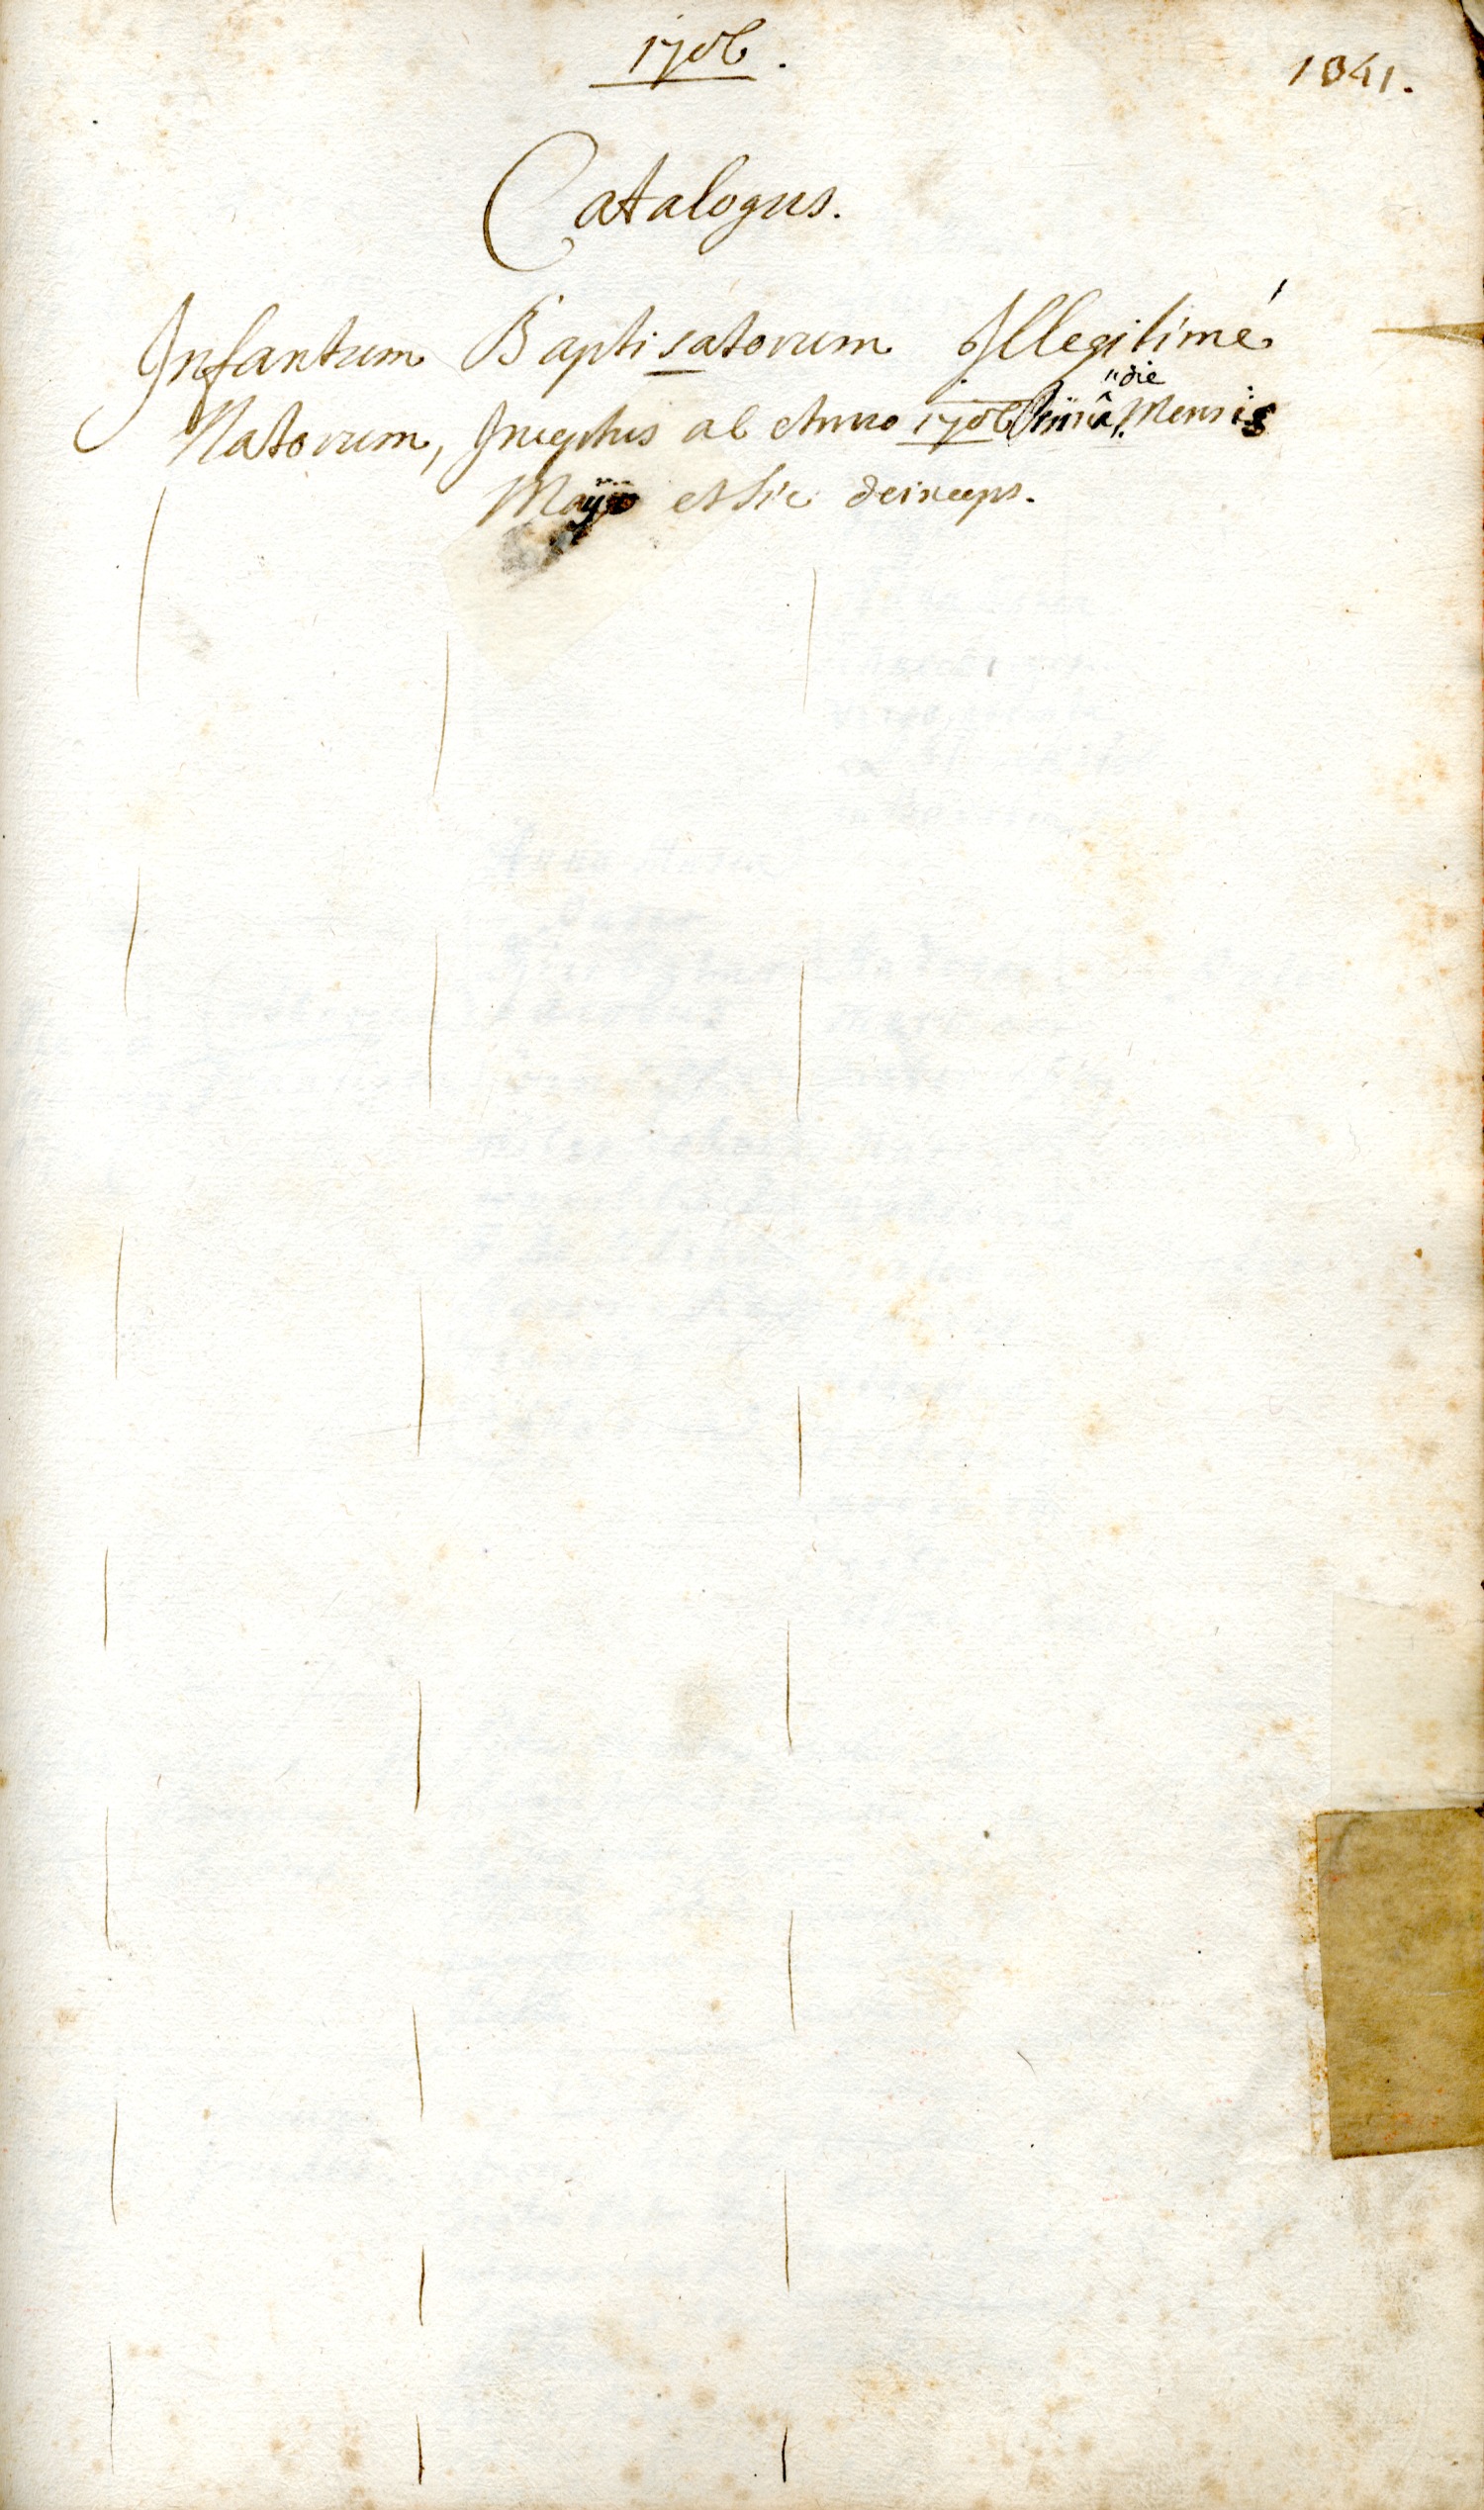 1706.
1041.
Catalogus.
Infantum Baptisatorum Illegitimé
Natorum, Inceptus ab Anno 1706 die Mensis
Maÿ et sic deinceps.